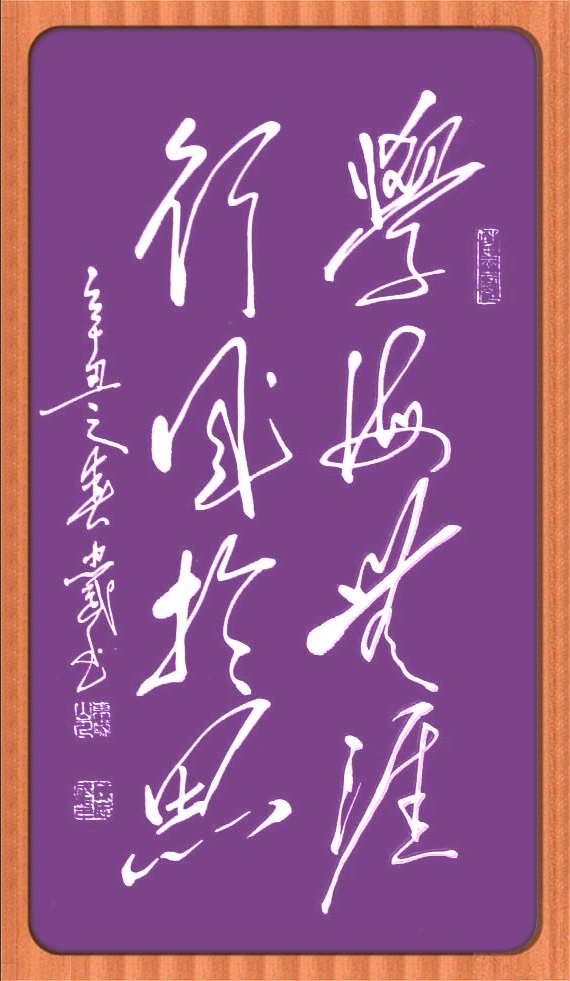 學海無涯
行成於思
辛丑之春